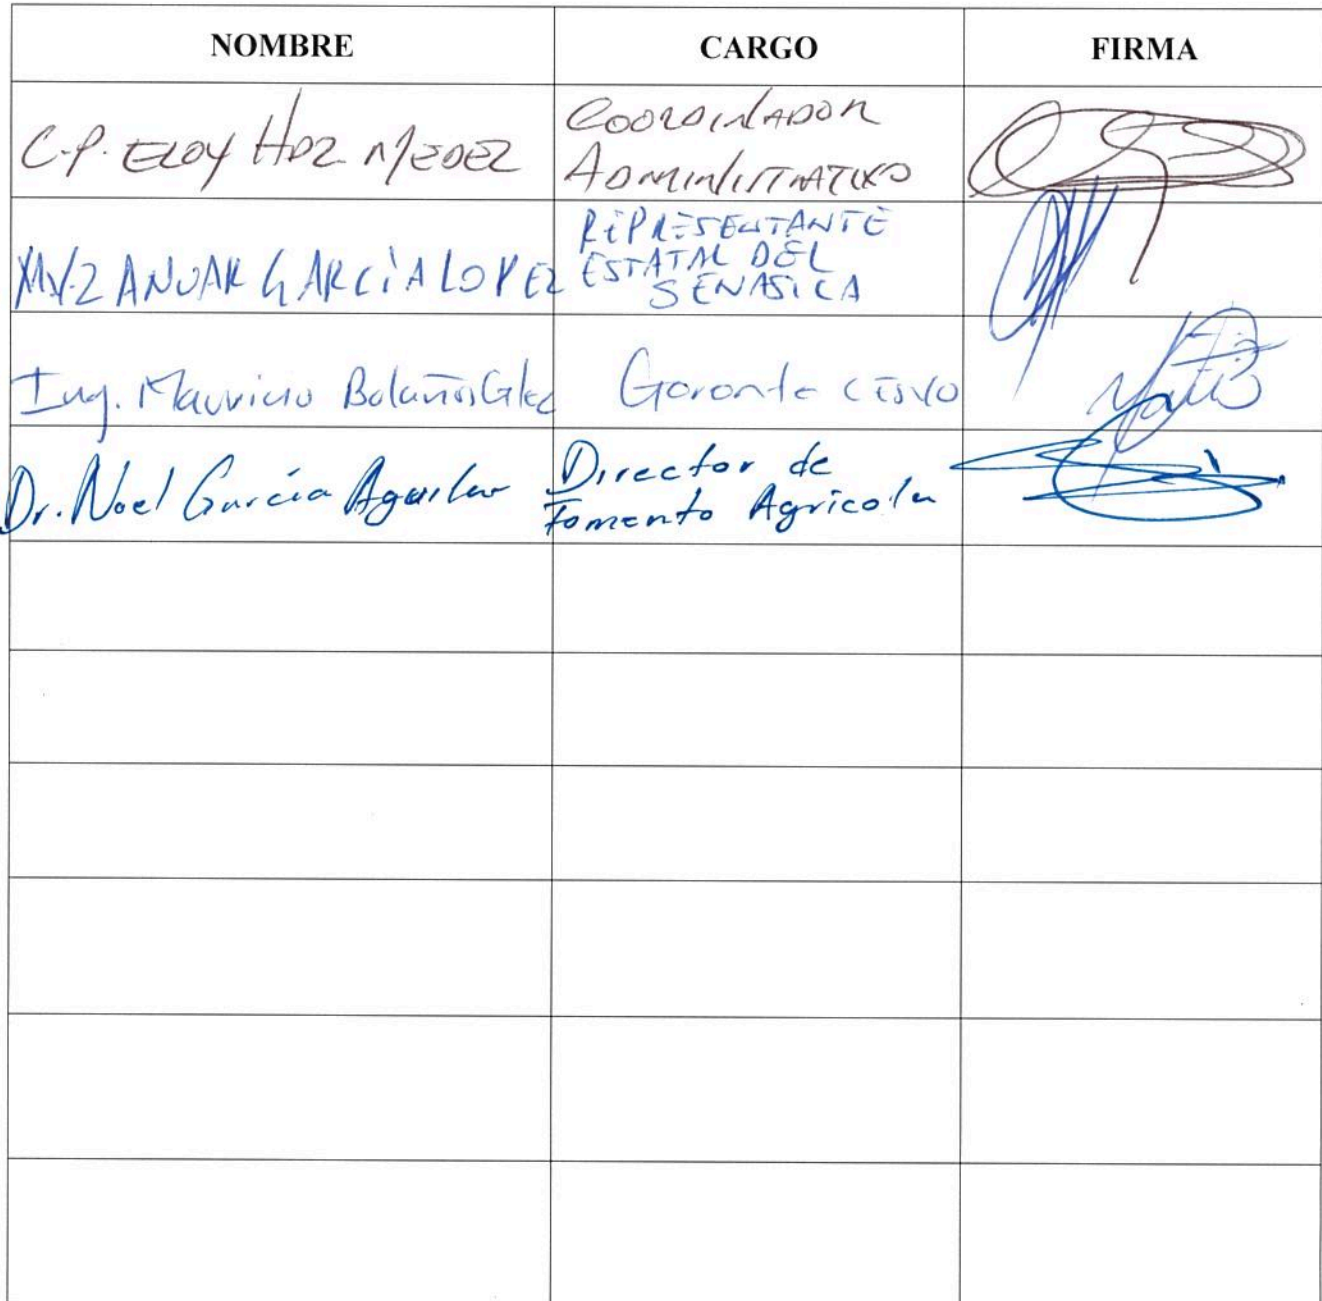 NOMBRE CARGO FIRMA
C.P. ELOY HDZ MEDEZ
COORDINADOR
ADMINISTRATIVO
MVZ ANUAR GARCÍA LOPEZ
REPRESENTANTE
ESTATAL DEL
SENASICA
Ing. Mauricio Bolaños Glez
Gerente CESVO
Dr. Noel García Aguilar
Director de
Fomento Agricola